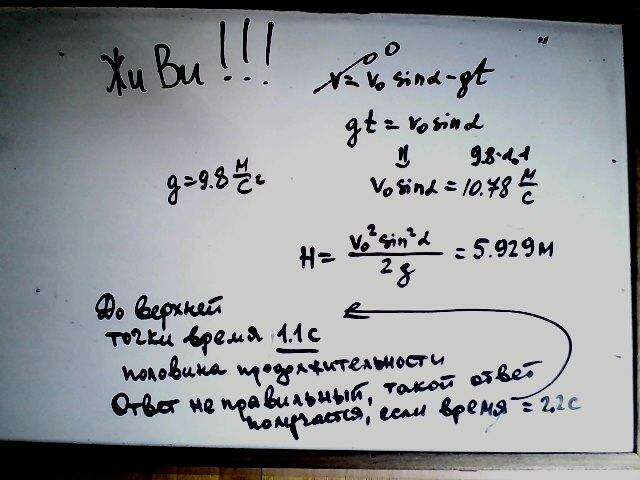 Живи!!!
v = v₀ sinα - gt
0
gt = v₀ sinα
9.8·1.1
g = 9.8 м/с²
v₀ sinα = 10.78 м/с
H = v₀² sin²α / 2g = 5.929 м
До верхней
точки время 1.1 с
половина продолжительности
Ответ не правильный, такой ответ
получается, если время = 2.2 с